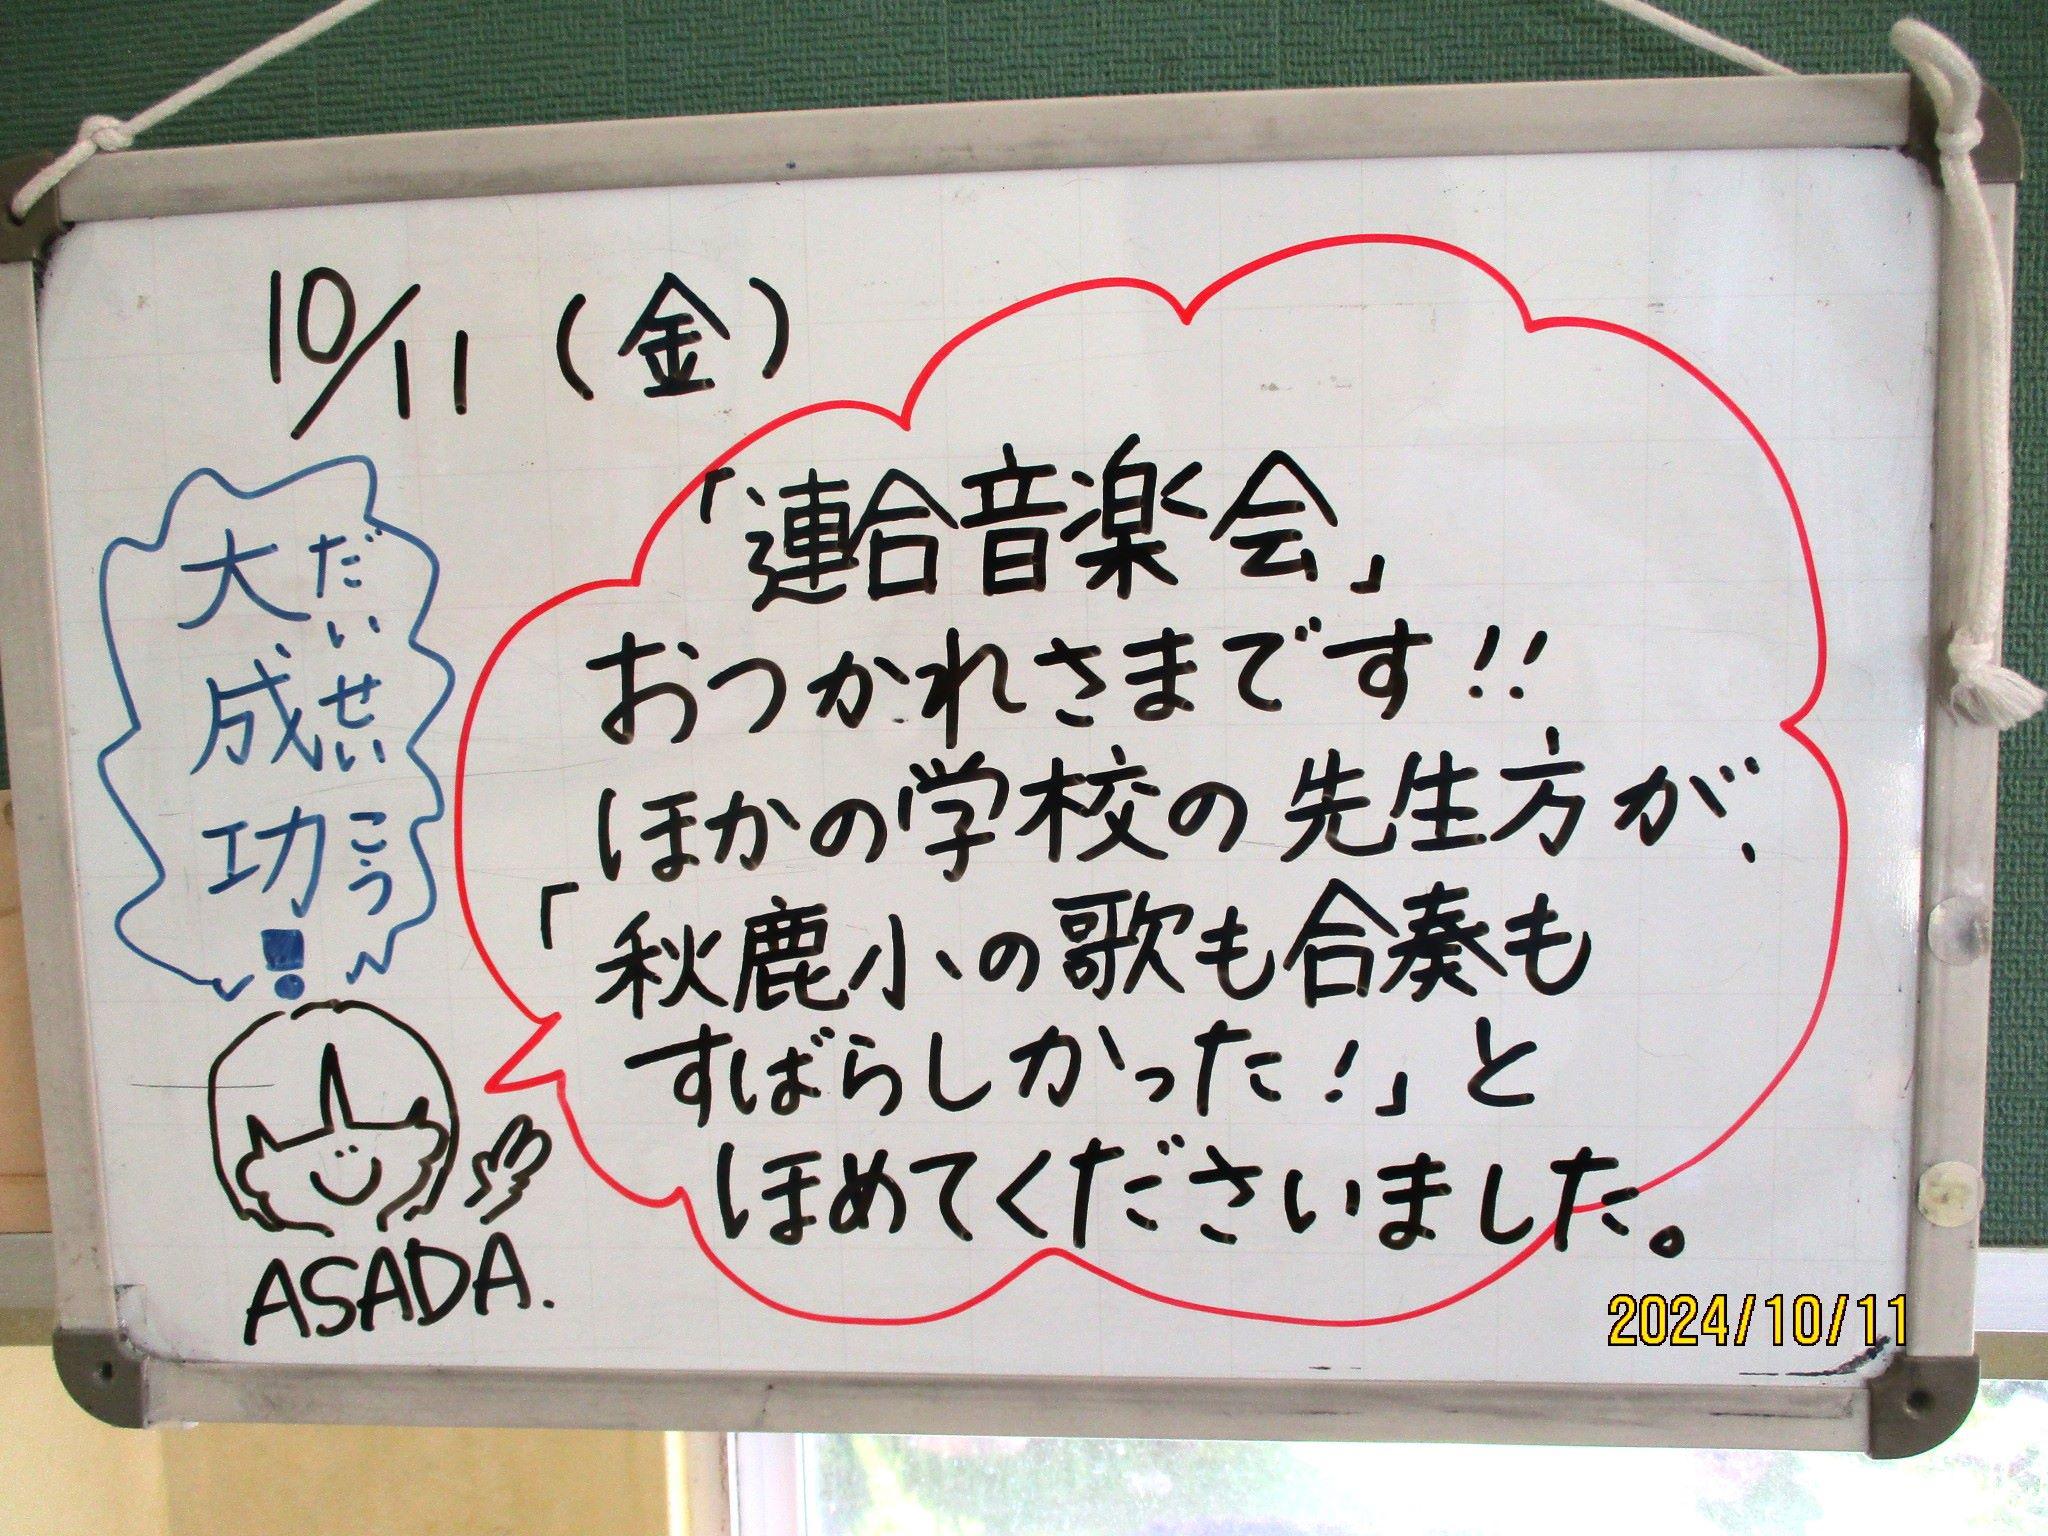 10/11（金）
「連合音楽会」
おつかれさまです!!
ほかの学校の先生方が、
「秋鹿小の歌も合奏も
すばらしかった！」と
ほめてくださいました。
大成功！
だいせいこう
ASADA.
2024/10/11